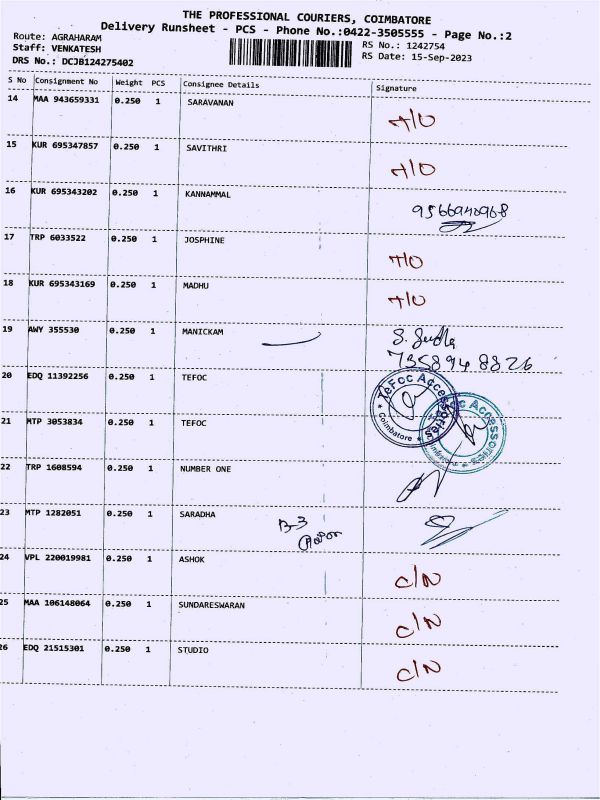 THE PROFESSIONAL COURIERS, COIMBATORE
Delivery Runsheet - PCS - Phone No.:0422-3505555 - Page No.:2
Route: AGRAHARAM
Staff: VENKATESH
DRS No.: DCJB124275402
RS No.: 1242754
RS Date: 15-Sep-2023
S No Consignment No Weight PCS Consignee Details Signature
14 MAA 943659331 0.250 1 SARAVANAN
15 KUR 695347857 0.250 1 SAVITHRI
16 KUR 695343202 0.250 1 KANNAMMAL 9566940968
17 TRP 6033522 0.250 1 JOSPHINE
18 KUR 695343169 0.250 1 MADHU
19 AWY 355530 0.250 1 MANICKAM
7358948826
20 EDQ 11392256 0.250 1 TEFOC TeFoc Accessories Coimbatore
21 MTP 3053834 0.250 1 TEFOC Accessories
22 TRP 1608594 0.250 1 NUMBER ONE
23 MTP 1282051 0.250 1 SARADHA B-3
24 VPL 220019981 0.250 1 ASHOK C/N
25 MAA 106148064 0.250 1 SUNDARESWARAN C/N
26 EDQ 21515301 0.250 1 STUDIO C/N